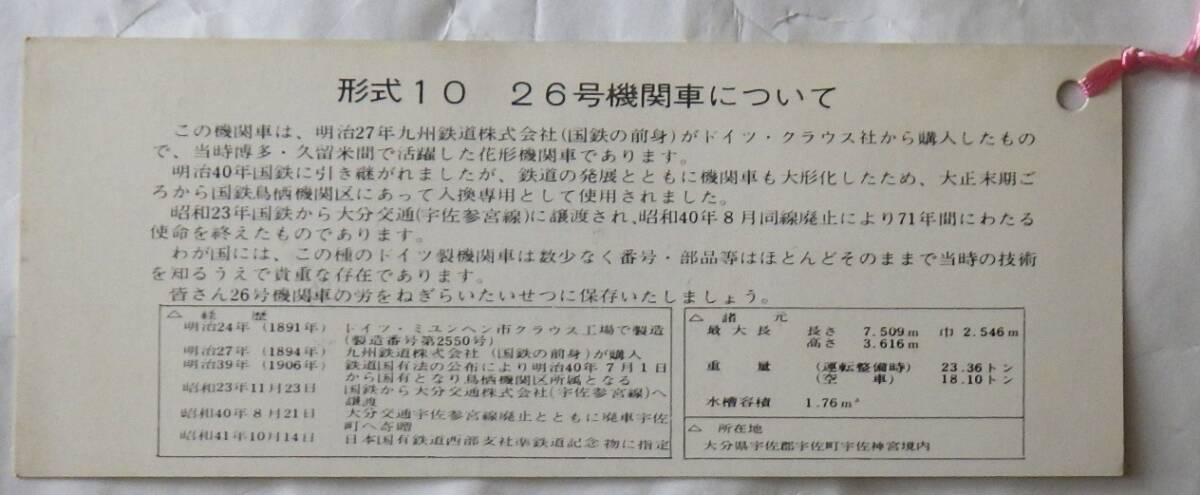 形式10　26号機関車について
この機関車は、明治27年九州鉄道株式会社(国鉄の前身)がドイツ・クラウス社から購入したもの
で、当時博多・久留米間で活躍した花形機関車であります。
明治40年国鉄に引き継がれましたが、鉄道の発展とともに機関車も大形化したため、大正末期ご
ろから国鉄鳥栖機関区にあって入換専用として使用されました。
昭和23年国鉄から大分交通(宇佐参宮線)に譲渡され、昭和40年8月同線廃止により71年間にわたる
使命を終えたものであります。
わが国には、この種のドイツ製機関車は数少なく番号・部品等はほとんどそのままで当時の技術
を知るうえで貴重な存在であります。
皆さん26号機関車の労をねぎらいたいせつに保存いたしましょう。
△ 経　歴
明治24年 (1891年) ドイツ・ミユンヘン市クラウス工場で製造
(製造番号第2550号)
明治27年 (1894年) 九州鉄道株式会社 (国鉄の前身)が購入
明治39年 (1906年) 鉄道国有法の公布により明治40年7月1日
から国有となり鳥栖機関区所属となる
昭和23年11月23日 国鉄から大分交通株式会社(宇佐参宮線)へ
譲渡
昭和40年8月21日 大分交通宇佐参宮線廃止とともに廃車宇佐
町へ寄贈
昭和41年10月14日 日本国有鉄道西部支社準鉄道記念物に指定
△ 諸　元
最大長 長さ 7.509m 巾 2.546m
高さ 3.616m
重量 (運転整備時) 23.36トン
(空車) 18.10トン
水槽容積 1.76m³
△ 所在地
大分県宇佐郡宇佐町宇佐神宮境内